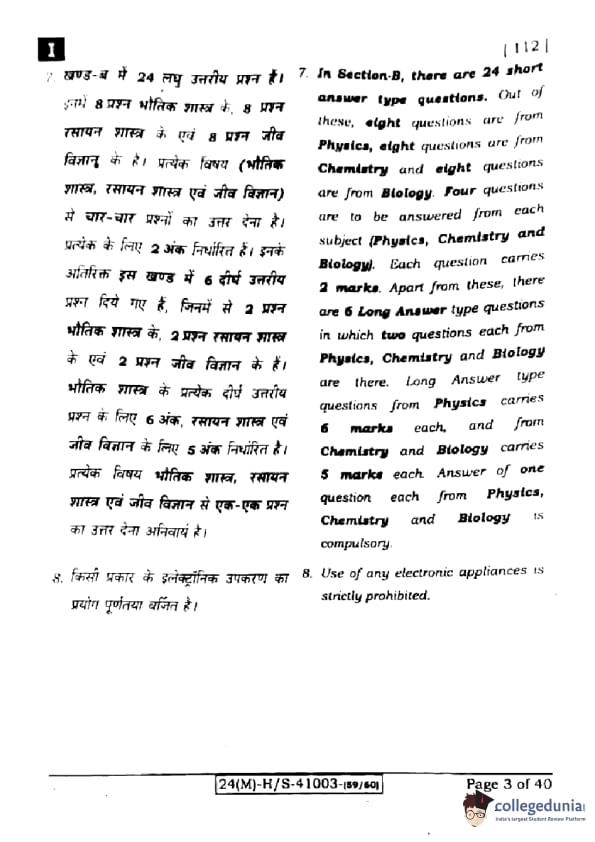 I
[ 112 ]
7. खण्ड-ब में 24 लघु उत्तरीय प्रश्न हैं।
इनमें 8 प्रश्न भौतिक शास्त्र के, 8 प्रश्न
रसायन शास्त्र के एवं 8 प्रश्न जीव
विज्ञान के है। प्रत्येक विषय (भौतिक
शास्त्र, रसायन शास्त्र एवं जीव विज्ञान)
से चार-चार प्रश्नों का उत्तर देना है।
प्रत्येक के लिए 2 अंक निर्धारित है। इनके
अतिरिक्त इस खण्ड में 6 दीर्घ उत्तरीय
प्रश्न दिये गए हैं, जिनमें से 2 प्रश्न
भौतिक शास्त्र के, 2 प्रश्न रसायन शास्त्र
के एवं 2 प्रश्न जीव विज्ञान के हैं।
भौतिक शास्त्र के प्रत्येक दीर्घ उत्तरीय
प्रश्न के लिए 6 अंक, रसायन शास्त्र एवं
जीव विज्ञान के लिए 5 अंक निर्धारित है।
प्रत्येक विषय भौतिक शास्त्र, रसायन
शास्त्र एवं जीव विज्ञान से एक-एक प्रश्न
का उत्तर देना अनिवार्य है।
8. किसी प्रकार के इलेक्ट्रॉनिक उपकरण का
प्रयोग पूर्णतया वर्जित है।
7. In Section-B, there are 24 short
answer type questions. Out of
these, eight questions are from
Physics, eight questions are from
Chemistry and eight questions
are from Biology. Four questions
are to be answered from each
subject (Physics, Chemistry and
Biology). Each question carries
2 marks. Apart from these, there
are 6 Long Answer type questions
in which two questions each from
Physics, Chemistry and Biology
are there. Long Answer type
questions from Physics carries
6 marks each, and from
Chemistry and Biology carries
5 marks each. Answer of one
question each from Physics,
Chemistry and Biology is
compulsory.
8. Use of any electronic appliances is
strictly prohibited.
24(M)-H/S-41003-(59/60)
Page 3 of 40
collegedunia
India's largest Student Review Platform